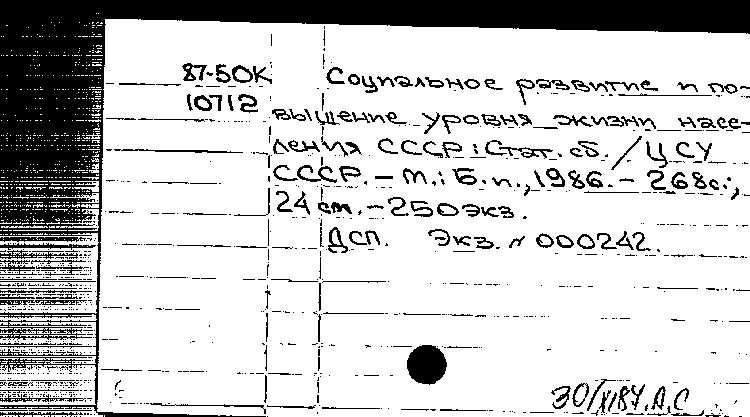 87-50К Социальное развитие и по-
10712 вышение уровня жизни насе-
ления СССР: Стат. сб. / ЦСУ
СССР. – М.: Б.и., 1986. – 268с.;
24 см. – 250экз.
ДСП. Экз. № 000242.
30/XI87. А.С.